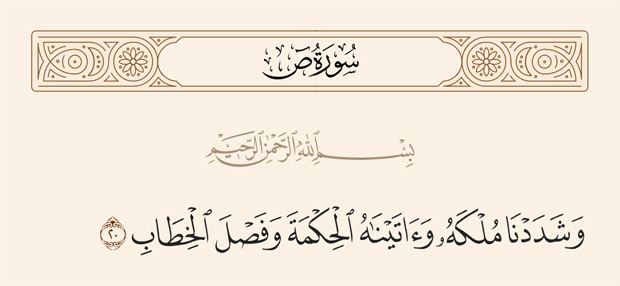 سُورَةُ صٓ
بِسْمِ اللَّهِ الرَّحْمَٰنِ الرَّحِيمِ
وَشَدَدْنَا مُلْكَهُۥ وَءَاتَيْنَٰهُ الْحِكْمَةَ وَفَصْلَ الْخِطَابِ ٢٠